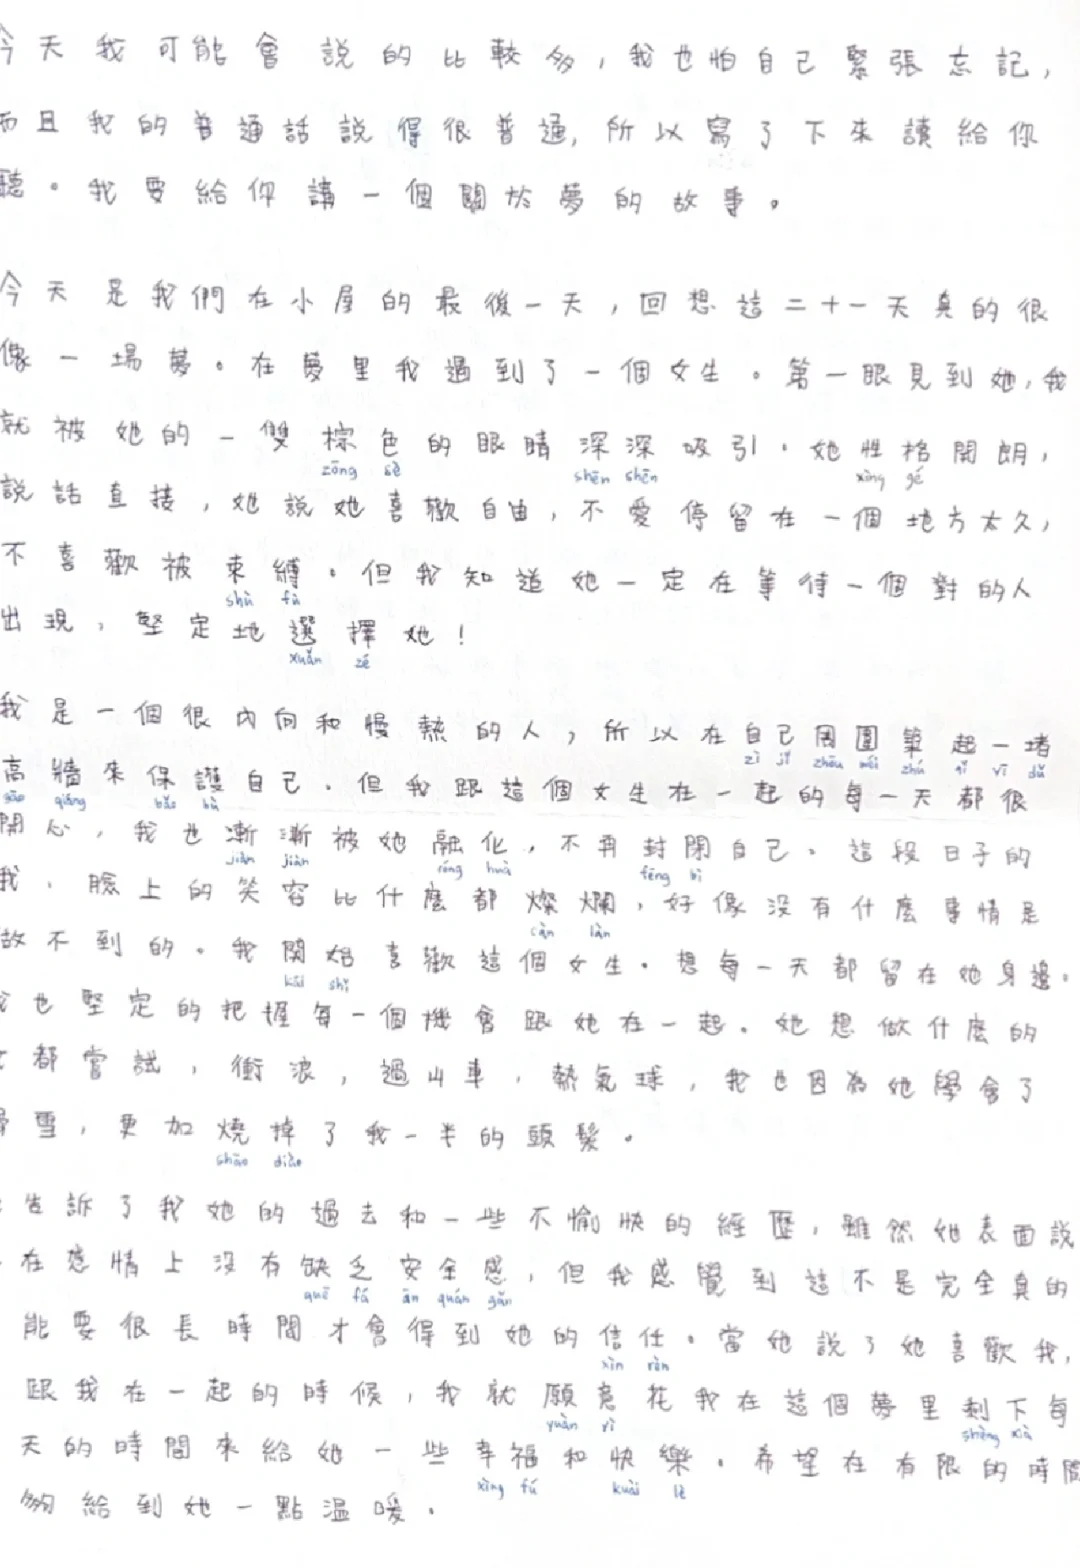 今天我可能會說的比較多，我也怕自己緊張忘記，
而且我的普通話說得很普通，所以寫了下來讀給你
聽。我要給你講一個關於夢的故事。
今天是我們在小屋的最後一天，回想這二十一天真的很
像一場夢。在夢里我遇到了一個女生。第一眼見到她，我
就被她的一雙棕色的眼睛深深吸引。她性格開朗，
zōng sè shēn shēn xìng gé
說話直接，她說她喜歡自由，不愛停留在一個地方太久，
不喜歡被束縛。但我知道她一定在等待一個對的人
shù fù
出現，堅定地選擇她！
xuǎn zé
我是一個很內向和慢熱的人，所以在自己周圍築起一堵
zì jǐ zhōu wéi zhú qǐ yī dǔ
高牆來保護自己。但我跟這個女生在一起的每一天都很
gāo qiáng bǎo hù
開心，我也漸漸被她融化，不再封閉自己。這段日子的
jiàn jiàn róng huà fēng bì
我，臉上的笑容比什麼都燦爛，好像沒有什麼事情是
càn làn
做不到的。我開始喜歡這個女生。想每一天都留在她身邊。
kāi shǐ
我也堅定的把握每一個機會跟她在一起。她想做什麼的
都嘗試，衝浪，過山車，熱氣球，我也因為她學會了
滑雪，更加燒掉了我一半的頭髮。
shāo diào
告訴了我她的過去和一些不愉快的經歷，雖然她表面說
在感情上沒有缺乏安全感，但我感覺到這不是完全真的
quē fá ān quán gǎn
能要很長時間才會得到她的信任。當她說了她喜歡我，
xìn rèn
跟我在一起的時候，我就願意花我在這個夢里剩下每
yuàn yì shèng xià
天的時間來給她一些幸福和快樂。希望在有限的時間
xìng fú kuài lè
夠給到她一點溫暖。